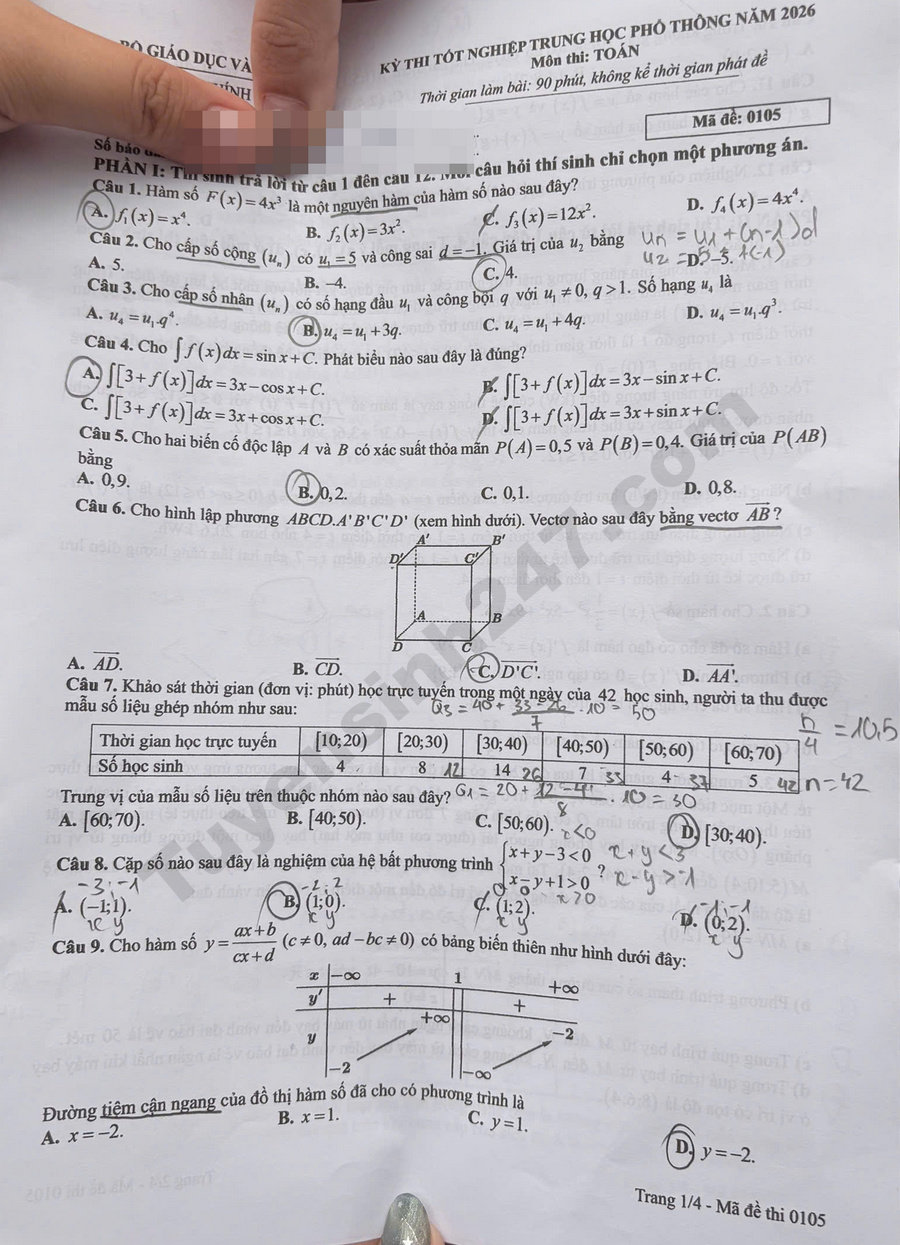 BỘ GIÁO DỤC VÀ
KỲ THI TỐT NGHIỆP TRUNG HỌC PHỔ THÔNG NĂM 2026
Môn thi: TOÁN
Thời gian làm bài: 90 phút, không kể thời gian phát đề
Mã đề: 0105
Số báo
PHẦN I: Thí sinh trả lời từ câu 1 đến câu 12. Mỗi câu hỏi thí sinh chỉ chọn một phương án.
Câu 1. Hàm số F(x)=4x³ là một nguyên hàm của hàm số nào sau đây?
A. f₁(x)=x⁴. B. f₂(x)=3x². C. f₃(x)=12x². D. f₄(x)=4x⁴.
Câu 2. Cho cấp số cộng (uₙ) có u₁=5 và công sai d=−1. Giá trị của u₂ bằng
un = u1 + (n-1)d
A. 5. B. −4. C. 4. D. −5.
u2 = 5 + (-1)
Câu 3. Cho cấp số nhân (uₙ) có số hạng đầu u₁ và công bội q với u₁≠0, q>1. Số hạng u₄ là
A. u₄=u₁.q⁴. B. u₄=u₁+3q. C. u₄=u₁+4q. D. u₄=u₁.q³.
Câu 4. Cho ∫f(x)dx=sin x+C. Phát biểu nào sau đây là đúng?
A. ∫[3+f(x)]dx=3x−cos x+C. B. ∫[3+f(x)]dx=3x−sin x+C.
C. ∫[3+f(x)]dx=3x+cos x+C. D. ∫[3+f(x)]dx=3x+sin x+C.
Câu 5. Cho hai biến cố độc lập A và B có xác suất thỏa mãn P(A)=0,5 và P(B)=0,4. Giá trị của P(AB)
bằng
A. 0,9. B. 0,2. C. 0,1. D. 0,8.
Câu 6. Cho hình lập phương ABCD.A'B'C'D' (xem hình dưới). Vectơ nào sau đây bằng vectơ AB?
A' B'
D' C'
A B
D C
A. AD. B. CD. C. D'C'. D. AA'.
Câu 7. Khảo sát thời gian (đơn vị: phút) học trực tuyến trong một ngày của 42 học sinh, người ta thu được
mẫu số liệu ghép nhóm như sau:
Q3 = 40 + (33-26)/7 . 10 = 50
n/4 = 10,5
Thời gian học trực tuyến [10;20) [20;30) [30;40) [40;50) [50;60) [60;70)
Số học sinh 4 8 12 14 26 7 33 4 37 5 42 n=42
Trung vị của mẫu số liệu trên thuộc nhóm nào sau đây?
A. [60;70). B. [40;50). C. [50;60). D. [30;40).
x<0
Câu 8. Cặp số nào sau đây là nghiệm của hệ bất phương trình {x+y−3<0 x−y+1>0 ?
x+y<3
x-y>-1
x>0
-3; -1 -2; 2 0 0 -1; -1
A. (−1;1). B. (1;0). C. (1;2). D. (0;2).
x y x y x y x y
Câu 9. Cho hàm số y=(ax+b)/(cx+d) (c≠0, ad−bc≠0) có bảng biến thiên như hình dưới đây:
x −∞ 1 +∞
y' + +
y −2 +∞ −∞ −2
Đường tiệm cận ngang của đồ thị hàm số đã cho có phương trình là
A. x=−2. B. x=1. C. y=1. D. y=−2.
Trang 1/4 - Mã đề thi 0105
Tuyensinh247.com